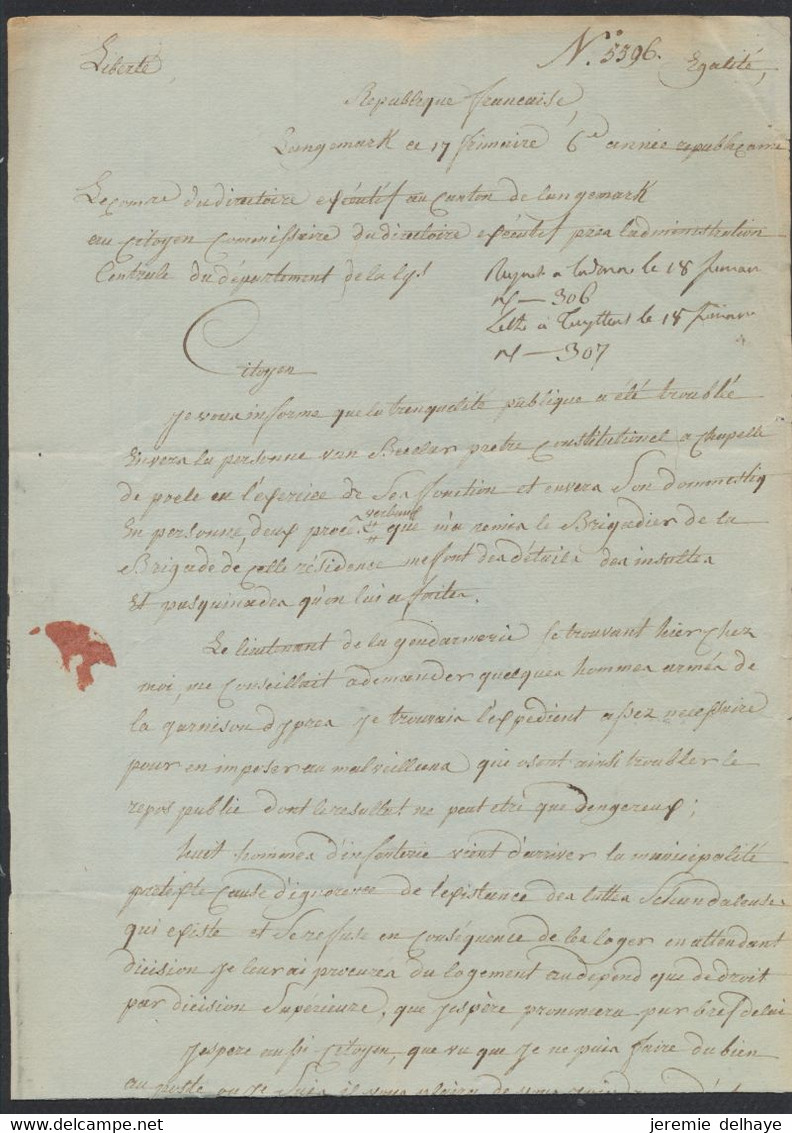 N.° 5596.
Liberté, Egalité,
Republique francaise,
Langemark ce 17 frimaire 6e année republicaine
Le comre du directoire exécutif au Canton de langemark
au Citoyen Commissaire du directoire exécutif pres l'administration
Centrale du département de la lys!
le 18 frimair
N — 306
à Tuyttens le 18 frimair
N — 307
Citoyen
Je vous informe que la trenqualité publique a été troublé
Envers la personne van Becelar pretre Constitutionel a Chapelle
de poele en l'exercice de Ses fonction et envers Son dommestiq
En personne, deux procè verbaux que m'a remis le Brigadier de la
Brigade de Celle résidence me font des détails des insultes
Et pasquinades qu'on lui a faites.
Le lieutenant de la gendarmerie se trouvant hier chez
moi, me Conseillait a demander quelques hommes armés de
la garnison d'ypres Je trouvais l'expedient assez necessaire
pour en imposer au malveillans qui osont ainsi troubler le
repos public dont le resultat ne peut etre que dengereux;
huit hommes d'infanterie vient d'arriver la municipalité
pretexte Cause d'ignorence de l'existance des luttes Schandaleuses
qui existe et Se refuse en Conséquence de les loger en attendant
dicision Je leur ai procurés du logement au depend que de droit
par dicision Supérieure, que J'espère prononcera par bref delai
J'espere aussi Citoyen, que vu que Je ne puis faire du bien
au poste ou Je Suis il vous plaira de
jeremie delhaye